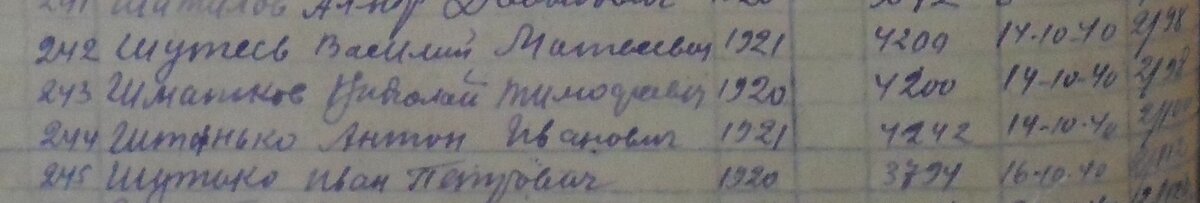 242 Шутесь Василий Матеевич 1921 4200 14-10-40 2/98
243 Шматков Николай Тимофеевич 1920 4200 14-10-40 2/98
244 Штанько Антон Иванович 1921 4242 14-10-40
245 Шутико Иван Петрович 1920 3794 16-10-40